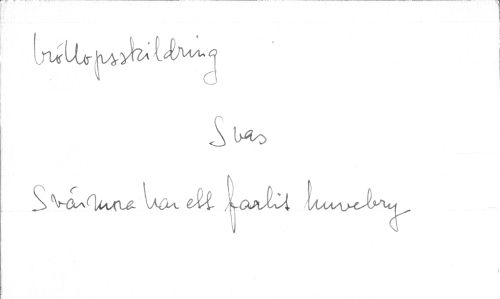 bröllopsskildring
Svas
Svärmora har ett farlit huvebry